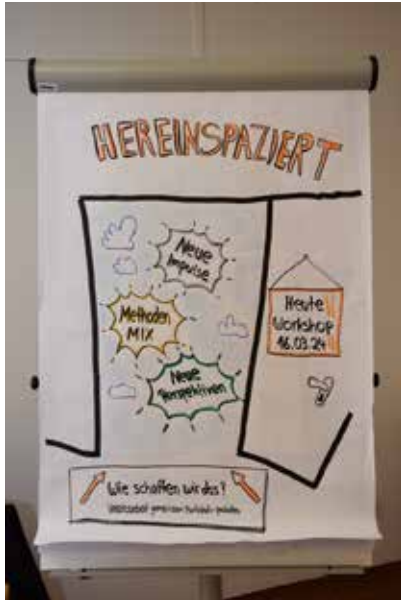 HEREINSPAZIERT
Neue
Impulse
Methoden
MIX
Neue
Perspektiven
Heute
Workshop
16.03.24
Wie schaffen wir das?